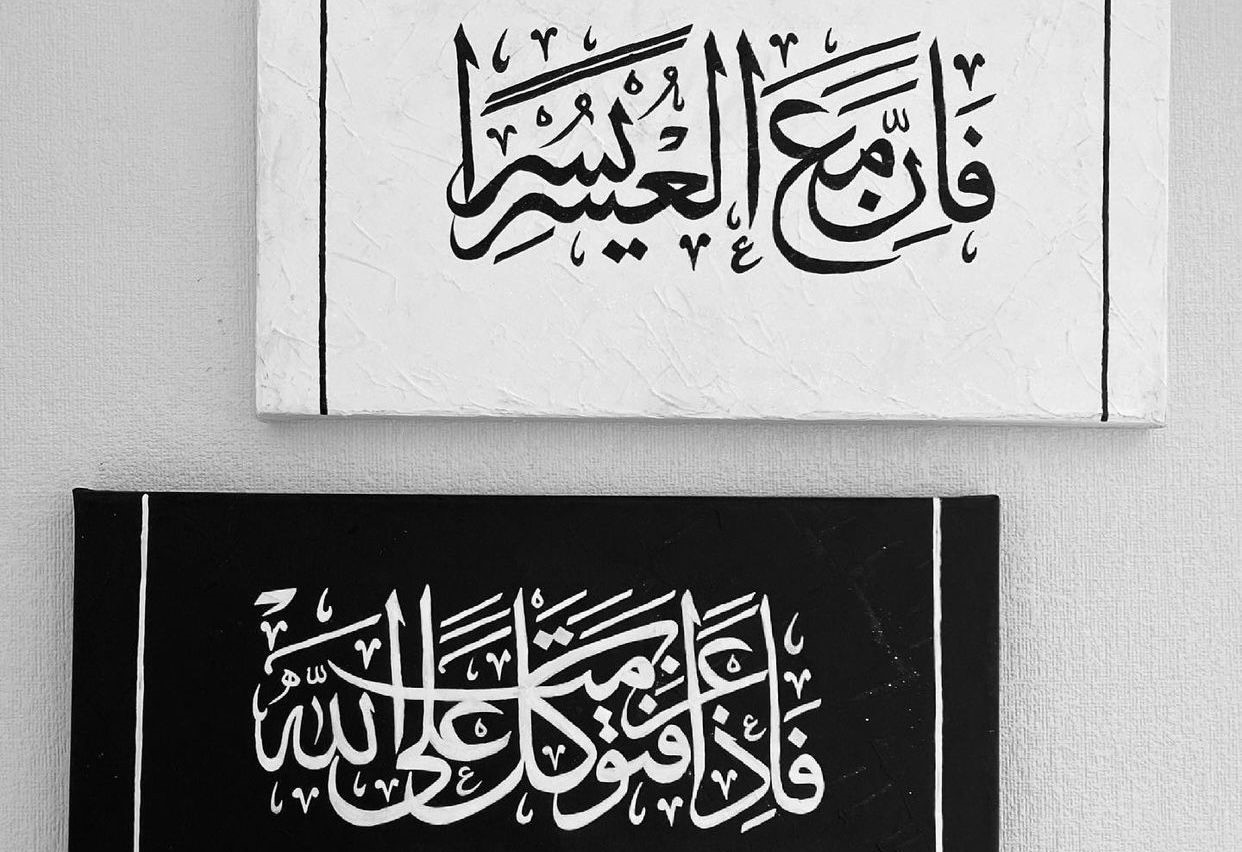 فَاِنَّ مَعَ الْعُسْرِ يُسْرًا
فَاِذَا عَزَمْتَ فَتَوَكَّلْ عَلَى اللّٰهِ